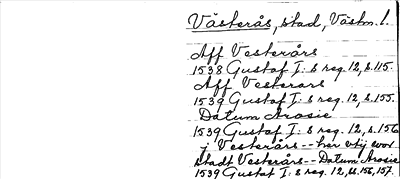 Västerås, stad, Västm. l.
Aff Vesterårs
1538 Gustaf I: s reg. 12, s. 115.
Aff Vesterars
1539 Gustaf I: s reg. 12, s. 155.
Datum Arosie
1539 Gustaf I: s reg. 12, s. 156
j Vesterårs -- har vtij wor
stadt Vesterårs -- Datum Arosie
1539 Gustaf I: s reg. 12, ss. 156, 157.